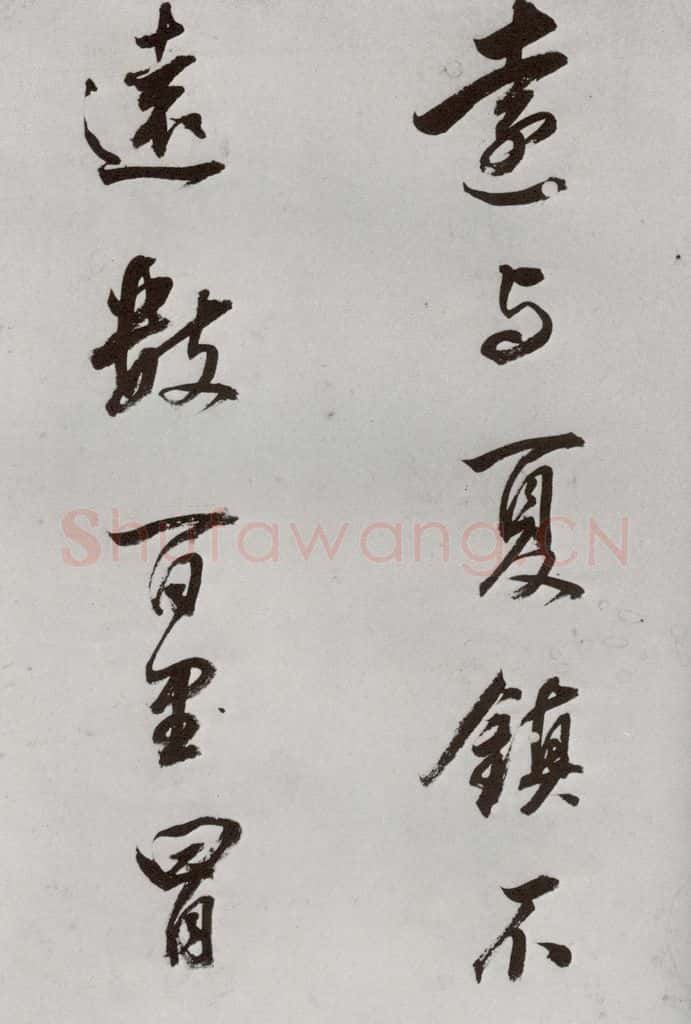 与夏鎮不
遠數百里冒
Shufawang.CN